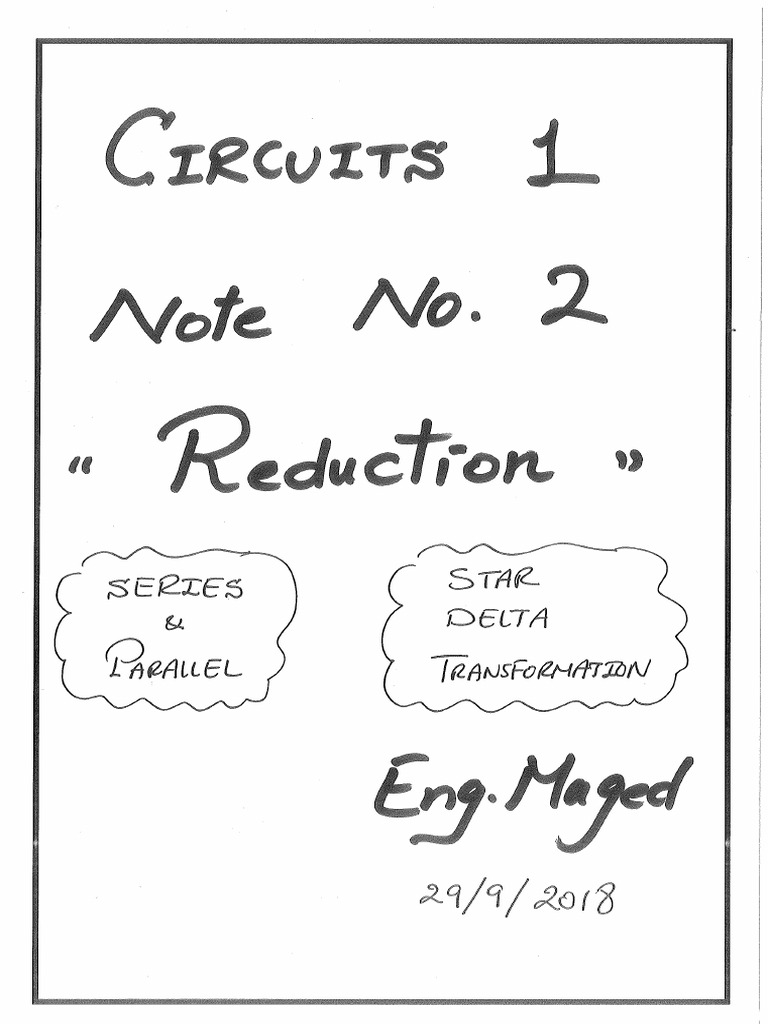 CIRCUITS 1
Note No. 2
" Reduction "
SERIES
&
PARALLEL
STAR
DELTA
TRANSFORMATION
Eng. Maged
29/9/2018